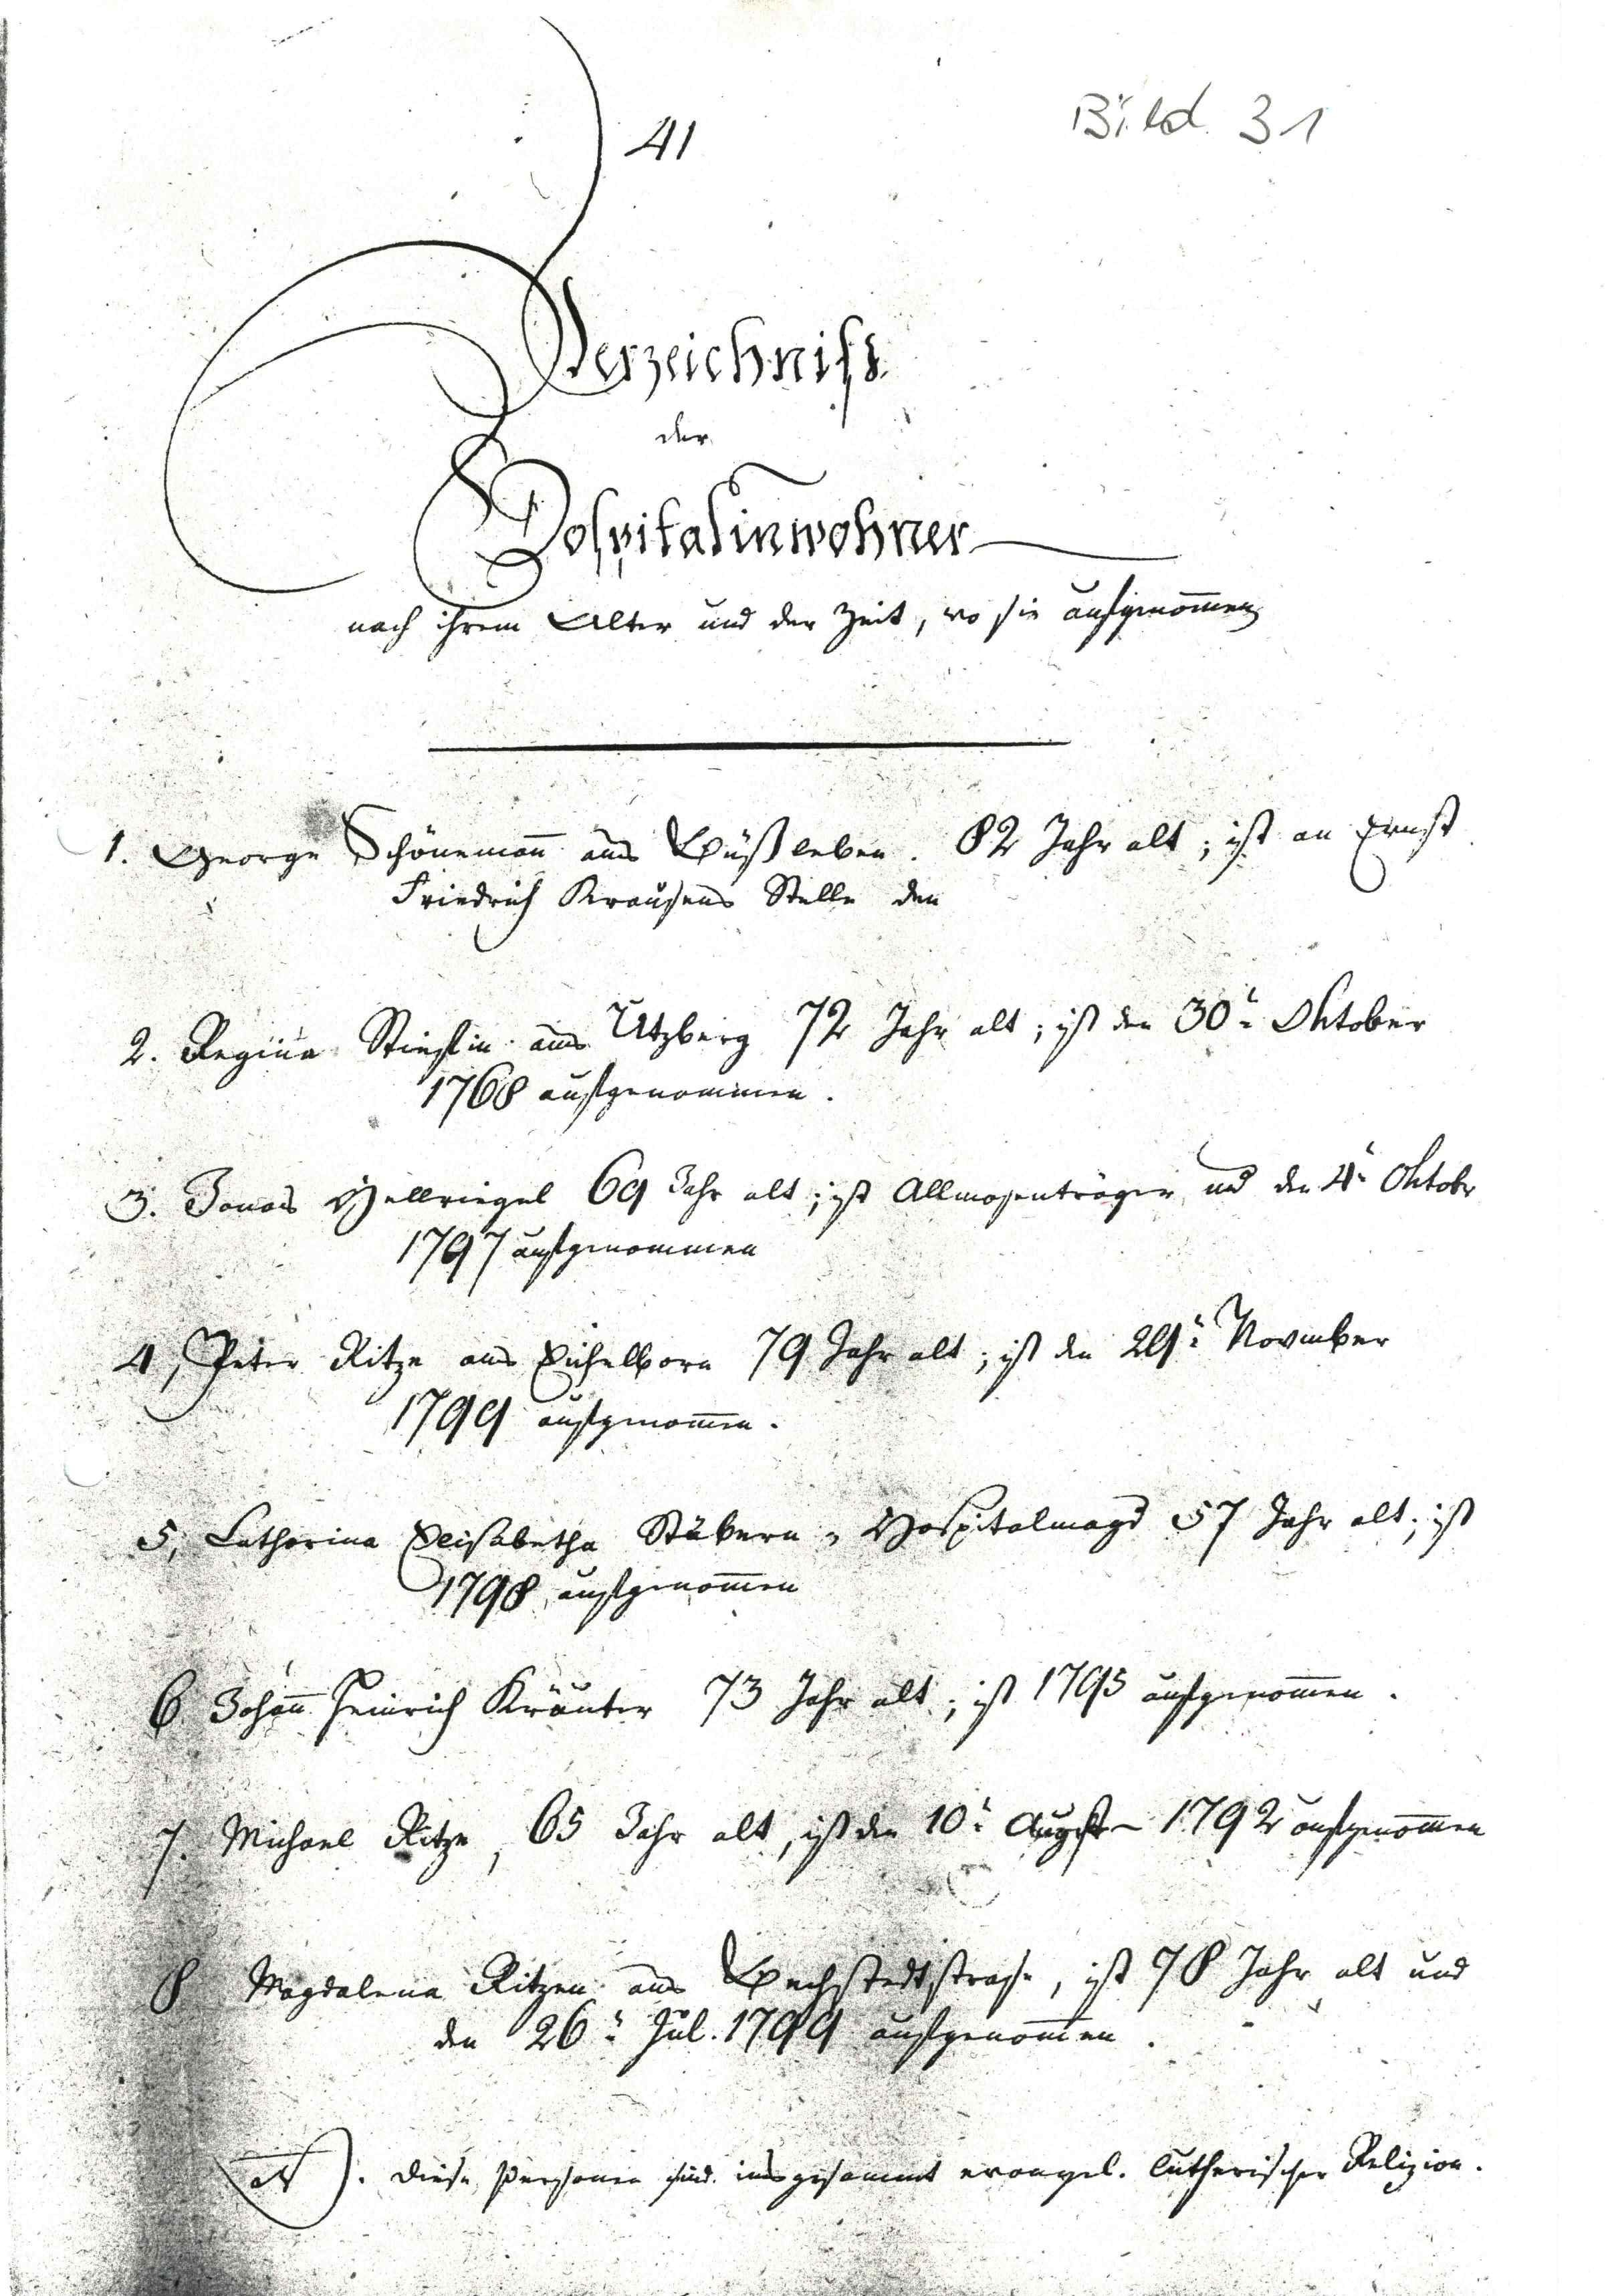 41
Bild. 31
Verzeichniß
der
Hospitalinwohner
nach ihrem Alter und der Zeit, wo sie aufgenom̅en
1. George Schöneman̅ aus Büßleben. 82 Jahr alt; ist an Ernst
Friedrich Krausens Stelle den
2. Regina aus Utzberg 72 Jahr alt; ist den 30. Oktober
1768 aufgenommen.
3. Jonas Hellriegel 69 Jahr alt; ist Allmosenträger und den 4. Oktobr
1797 aufgenommen
4, Peter Ritze aus Eichelborn 79 Jahr alt; ist den November
1799 aufgenom̅en.
5, Catharina Elisabetha Stübern, Hospitalmagd 57 Jahr alt; ist
1798 aufgenom̅en
6 Johan̅ Heinrich Kräuter 73 Jahr alt; ist 1795 aufgenom̅en.
7. Michael Ritze, 65 Jahr alt, ist den 10. August 1792 aufgenom̅en
8 Magdalena Ritzen aus Bechstedtstrasse, ist 78 Jahr alt und
den 26. Jul. 1799 aufgenom̅en.
Diese Personen sind insgesammt evangel. lutherischer Religion.